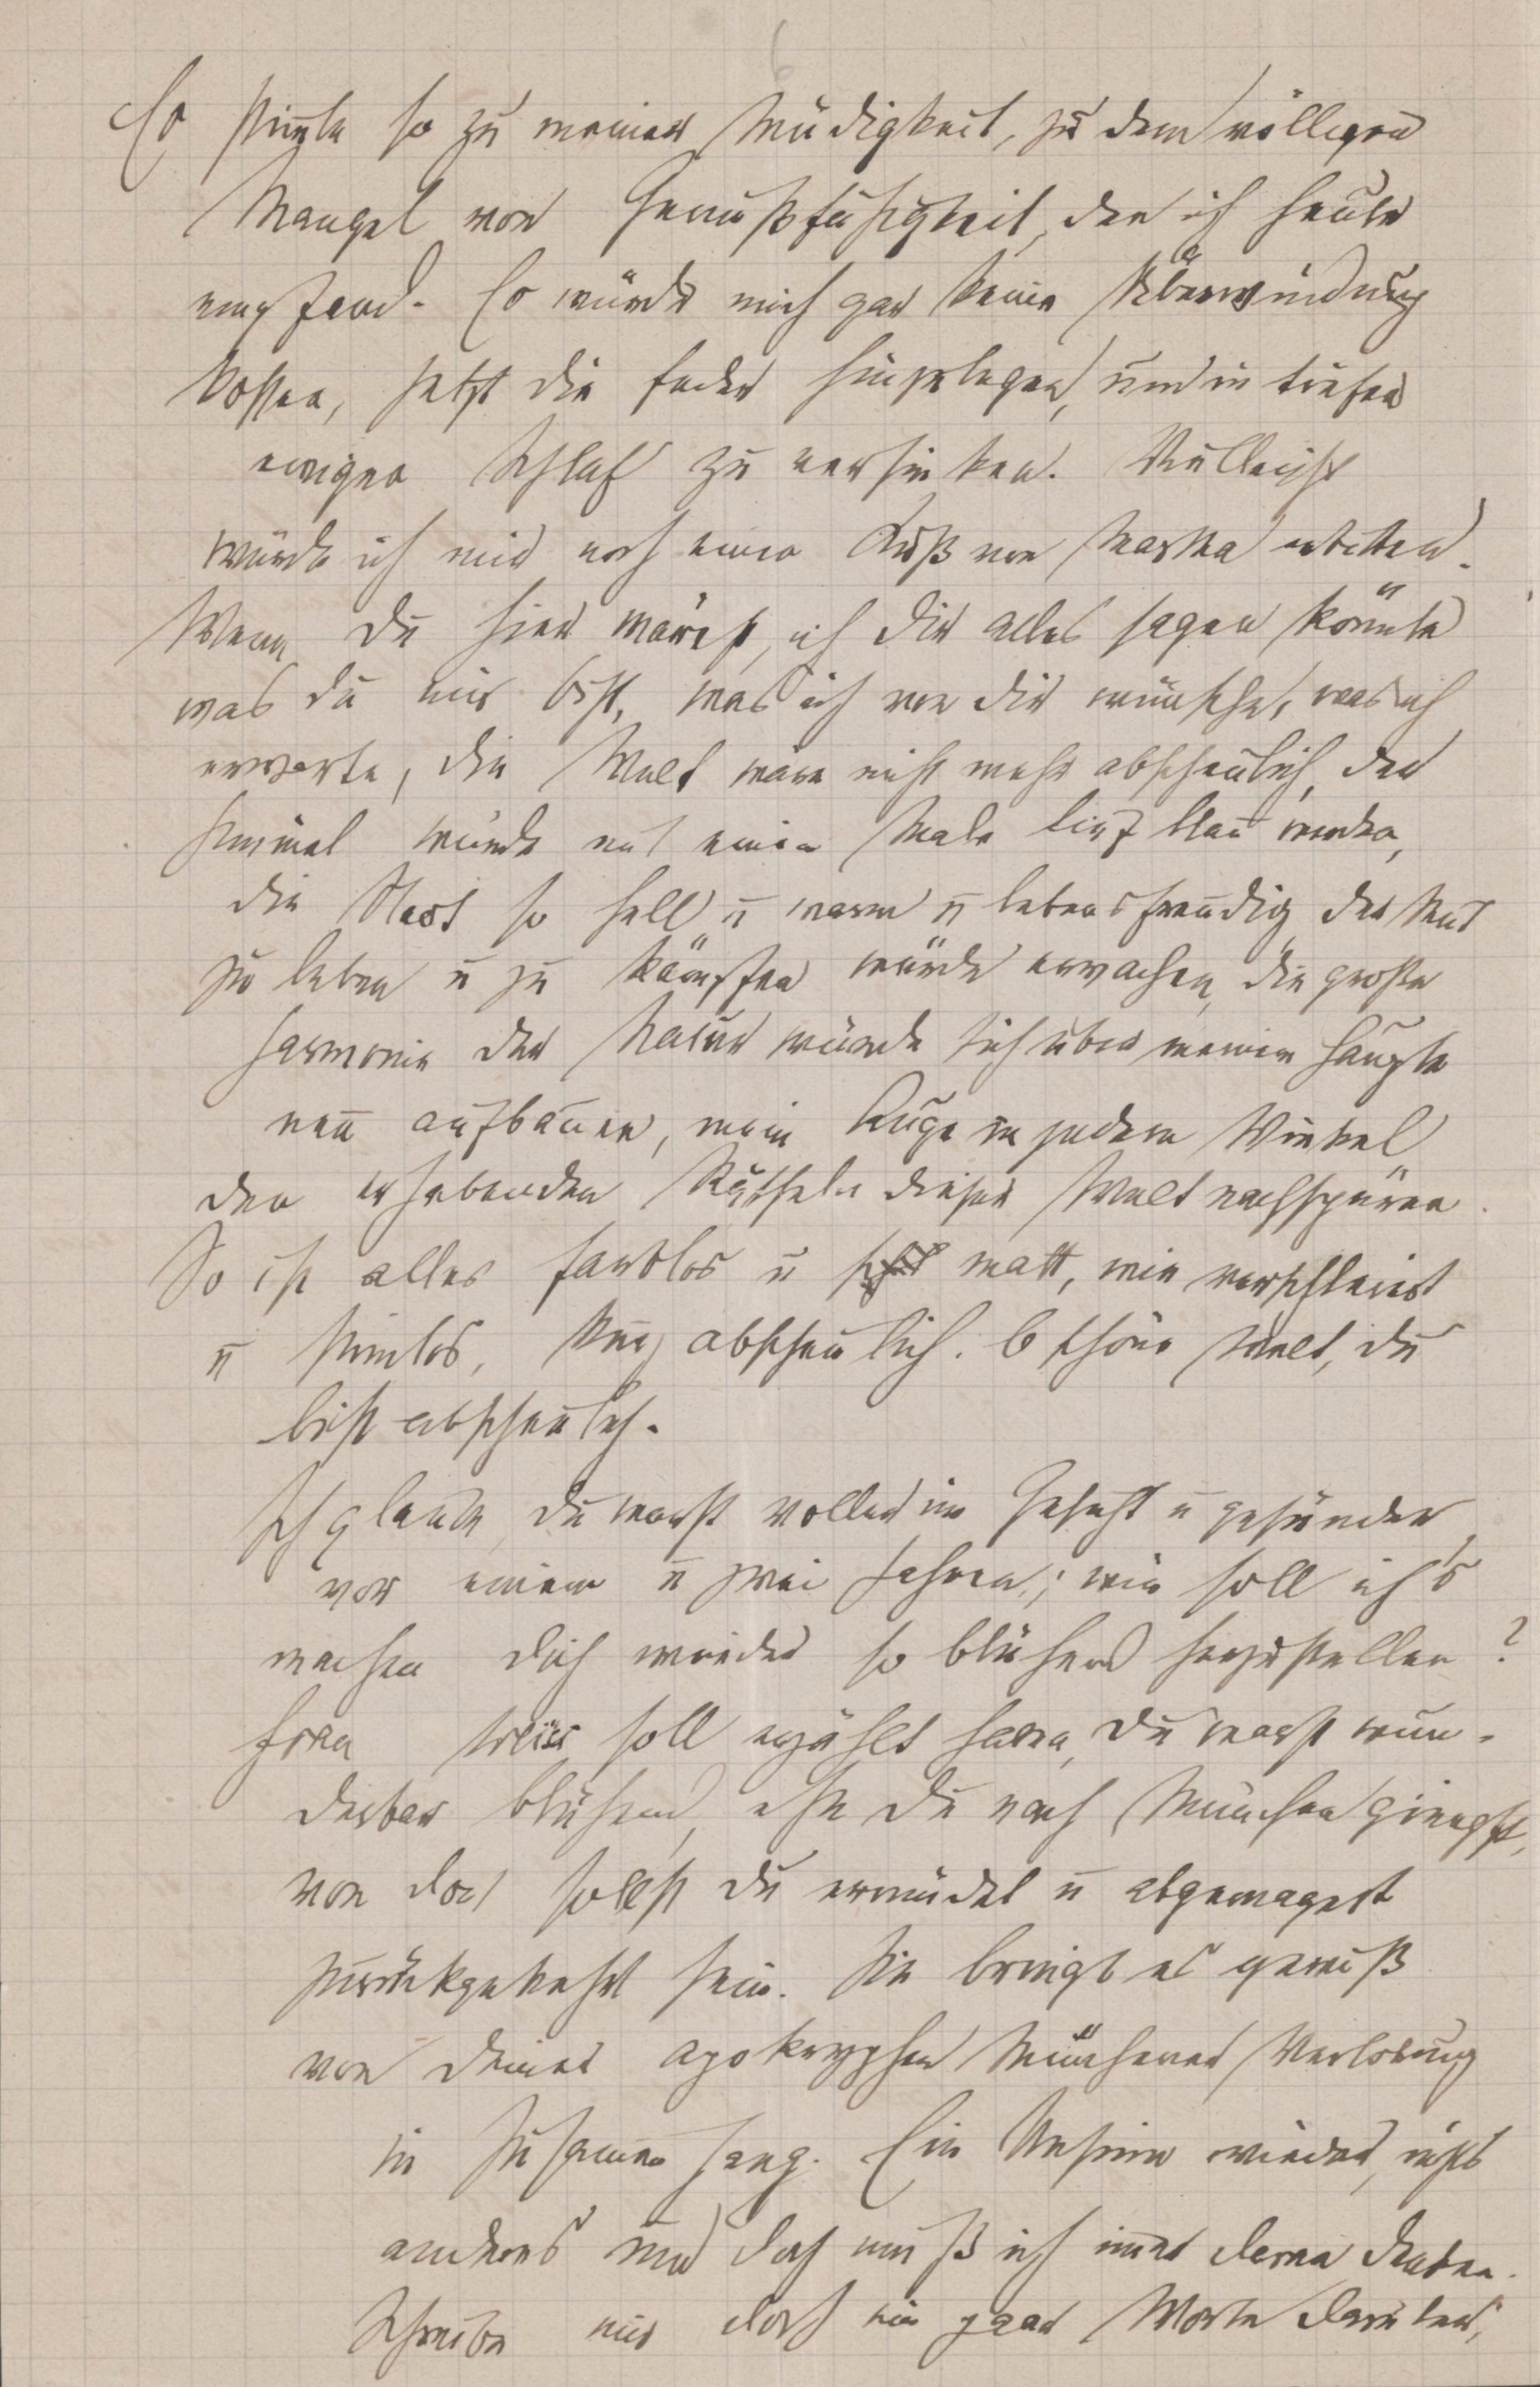 6
Es stimte so zu meiner Müdigkeit, zu dem völligen
Mangel von Genußfähigkeit, den ich heute
empfand. Es würde mich gar keine Überwindung
kosten, jetzt die Feder hinzulegen, um in tiefen
ewigen Schlaf zu versinken. Vielleicht
würde ich mir noch einen Kuß von Martha erbitten.
Wenn du hier wärest, ich dir alles sagen könnte
was du mir bist, was ich von dir wünsche, was ich
erwarte, die Welt wäre nicht mehr abscheulich, der
Himmel würde mit einem Male tief blau werden,
die Stadt so hell u warm u lebensfreudig, der Mut
zu leben u zu kämpfen würde erwachen, die große
Harmonie der Natur würde sich über meinem Haupte
neu aufbauen, mein Auge in jedem Winkel
den erhebenden Rätseln dieser Welt nachspüren.
So ist alles farblos u matt, wie verschleiert
u sinnlos, kurz abscheulich. O schöne Welt, du
bist abscheulich.
Ich glaube, du warst voller im Gesicht u gesünder
vor einem u zwei Jahren; wie soll ich's
machen dich wieder so blühend herzustellen?
Frau soll erzählt haben, du warst wun-
derbar blühend, ehe du nach München giengst,
von dort sollst du ermüdet u abgemagert
zurückgekehrt sein. Sie bringt es gewiß
von deiner apokryphen Münchener Verlobung
in Zusammenhang. Ein Unsinn wieder, nichts
anderes und doch muß ich immer daran denken.
Schreibe mir doch ein paar Worte darüber,